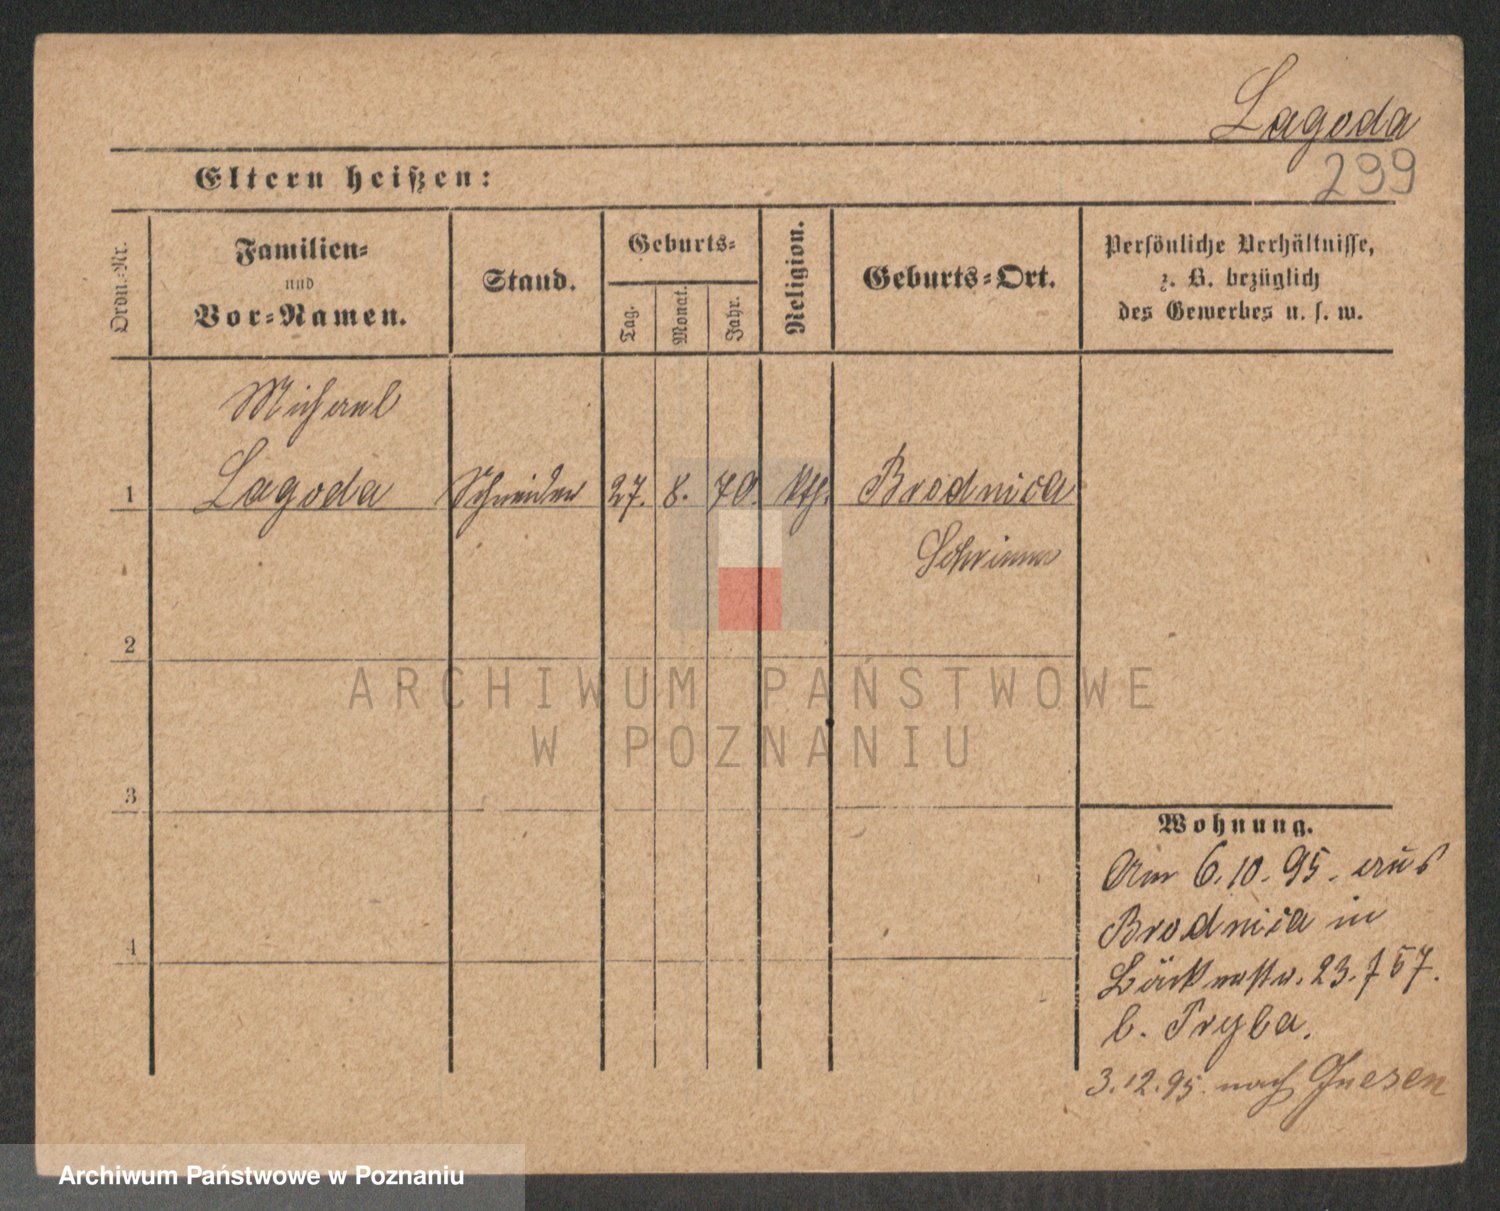 Lagoda
299
Eltern heißen:
Ordn.-Nr.
Familien-
und
Vor-Namen.
Stand.
Geburts-
Tag.
Monat.
Jahr.
Religion.
Geburts-Ort.
Persönliche Verhältnisse,
z. B. bezüglich
des Gewerbes u. s. w.
Michael
1 Lagoda Schneider 27. 8. 70. kth. Brodnica
Schrimm
2
3
4
Wohnung.
Am 6.10.95. aus
Brodnica in
Bäckerstr. 23.
b. Pryba.
3.12.95. nach Gnesen
ARCHIWUM PAŃSTWOWE
W POZNANIU
Archiwum Państwowe w Poznaniu